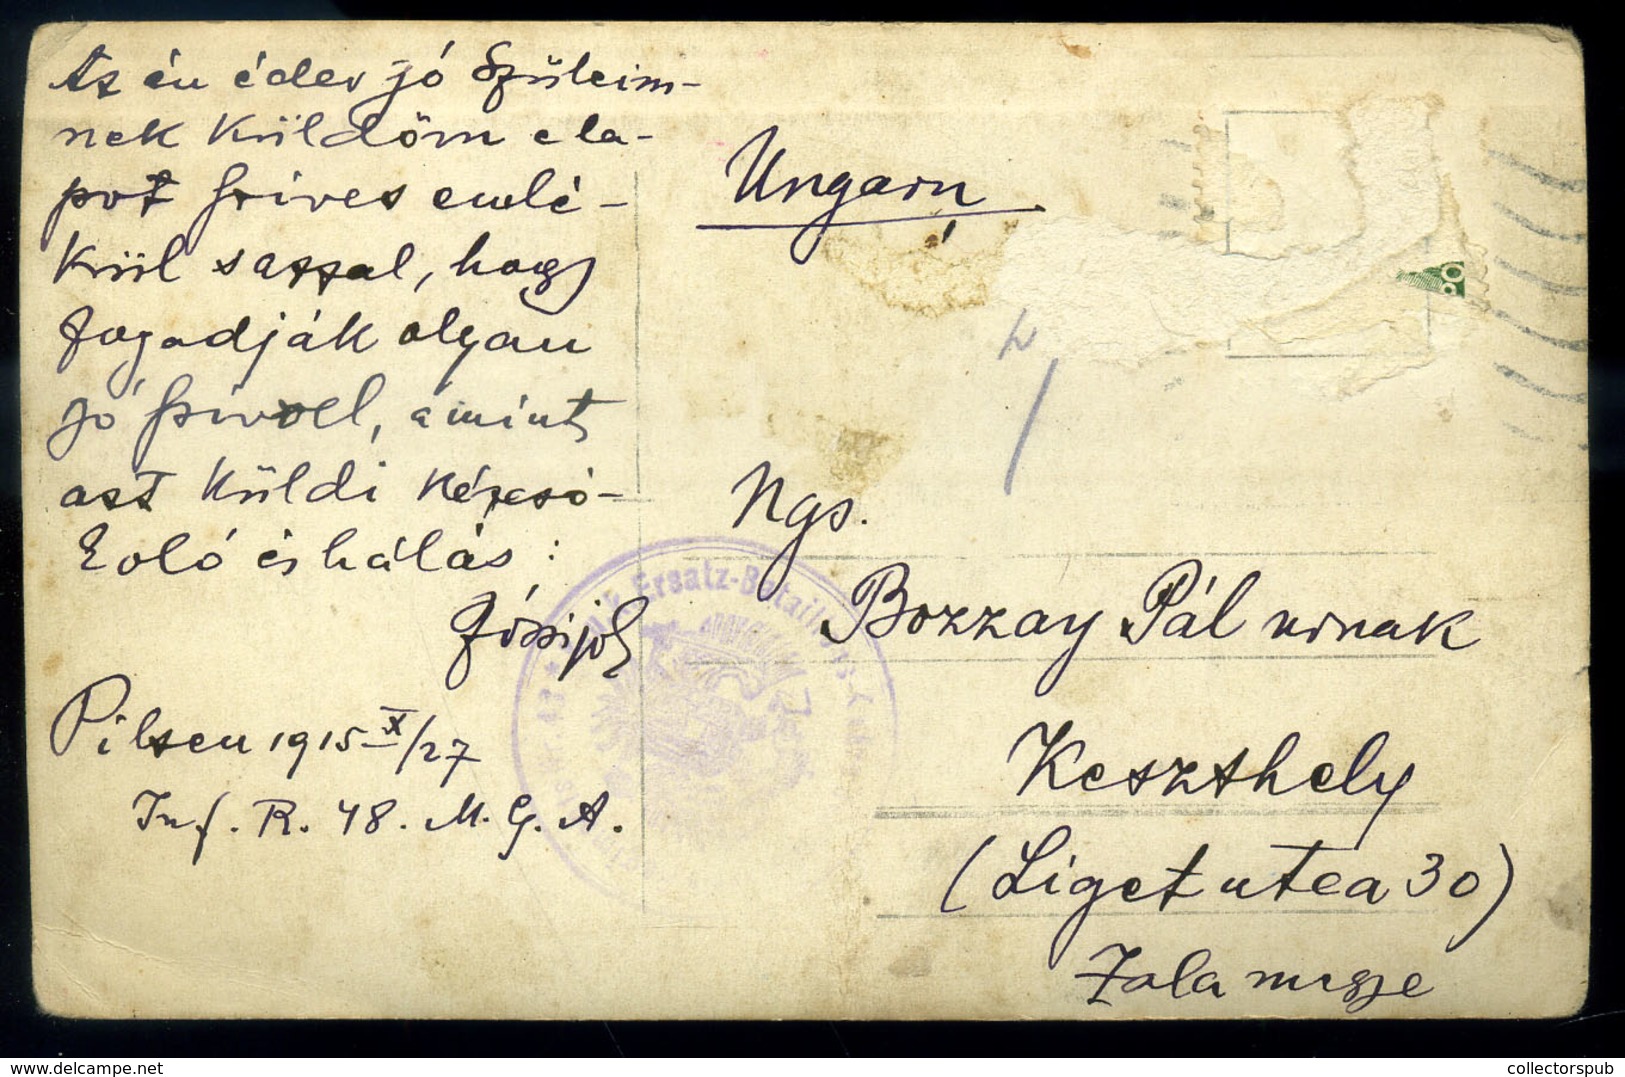 Az én édes jó Szüleim-
nek küldöm e la-
pot szives emlé-
kül azzal, hogy
fogadják olyan
jó szivvel, amint
azt küldi kézcsó-
koló és hálás:
Pilsen 1915 X/27
Inf. R. 48. M. G. A.
Ungarn
Ngs.
Bozzay Pál urnak
Keszthely
(Liget utca 30)
Zala megye
Ersatz-Bataillons
delcampe.net
collectorspub